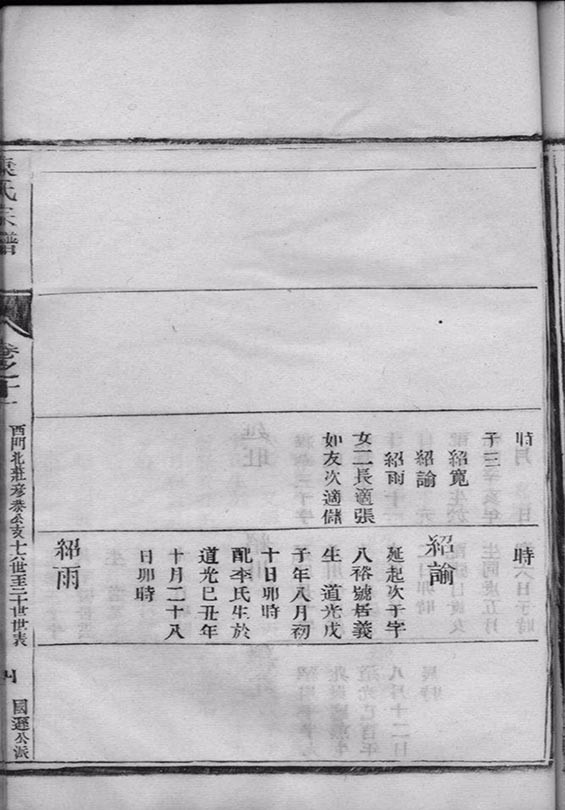 時
子三
紹寬
紹諭
紹雨
女二長適張
如友次適儲
時
紹諭
延起次子字
八裕號居義
生 道光戊
子年八月初
十日卯時
配李氏生於
道光己丑年
十月二十八
日卯時
紹雨
袁氏宗譜
卷之十
西門北莊彥泰公亥十六世至二十世世表
國遷公派